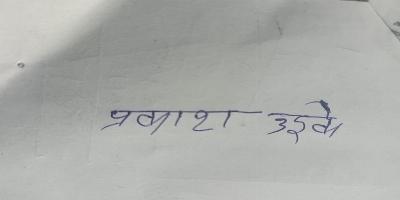 प्रकाश उइके